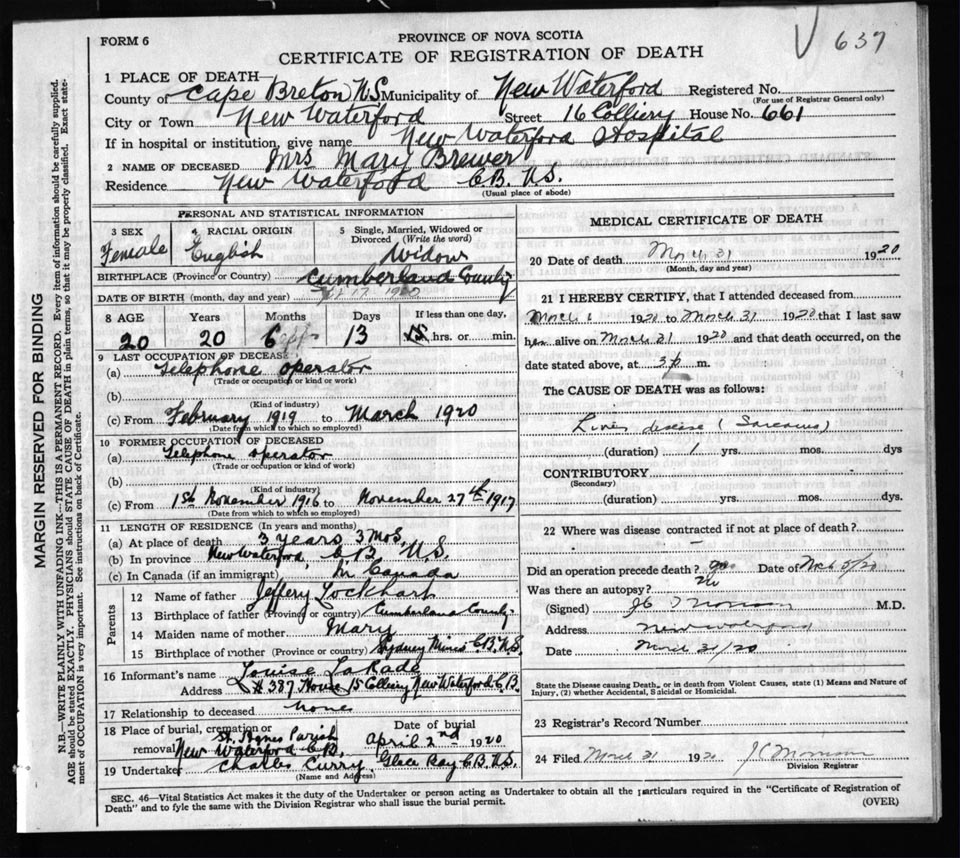 FORM 6
PROVINCE OF NOVA SCOTIA
CERTIFICATE OF REGISTRATION OF DEATH
637
1 PLACE OF DEATH—
County of Cape Breton N.S. Municipality of New Waterford Registered No.
(For use of Registrar General only)
City or Town New Waterford Street 16 Colliery House No. 661
If in hospital or institution, give name New Waterford Hospital
2 NAME OF DECEASED Mrs Mary Brewer
Residence New Waterford C.B. N.S.
(Usual place of abode)
PERSONAL AND STATISTICAL INFORMATION
3 SEX Female
4 RACIAL ORIGIN English
5 Single, Married, Widowed or Divorced (Write the word) Widow
BIRTHPLACE (Province or Country) Cumberland County
DATE OF BIRTH (month, day and year)
8 AGE Years Months Days If less than one day,
20 20 6 13 hrs. or min.
9 LAST OCCUPATION OF DECEASED
(a) Telephone operator
(Trade or occupation or kind or work)
(b)
(Kind of industry)
(c) From February 1919 to March 1920
(Date from which to which so employed)
10 FORMER OCCUPATION OF DECEASED
(a) Telephone operator
(Trade or occupation or kind or work)
(b)
(Kind of industry)
(c) From 1st November 1916 to November 27th 1917
(Date from which to which so employed)
11 LENGTH OF RESIDENCE (In years and months)
(a) At place of death 3 years 3 Mos.
(b) In province New Waterford, C.B., N.S.
(c) In Canada (if an immigrant) In Canada
Parents
12 Name of father Jeffery Lockhart
13 Birthplace of father (Province or country) Cumberland County
14 Maiden name of mother Mary
15 Birthplace of mother (Province or country) Sydney Mines C.B. N.S.
16 Informant's name Louise LaRade
Address # 387 House 15 Colliery New Waterford C.B.
17 Relationship to deceased None
18 Place of burial, cremation or removal St. Agnes Parish New Waterford C.B.
Date of burial April 2nd 1920
19 Undertaker Charles Curry Glace Bay C.B. N.S.
(Name and Address)
MEDICAL CERTIFICATE OF DEATH
20 Date of death March 31 1920
(Month, day and year)
21 I HEREBY CERTIFY, that I attended deceased from
March 1920 to March 31 1920 that I last saw
h alive on March 31 1920 and that death occurred, on the
date stated above, at 3 p m.
The CAUSE OF DEATH was as follows:
Liver disease (Sarcoma)
(duration) 1 yrs. mos. dys
CONTRIBUTORY
(Secondary)
(duration) yrs. mos. dys.
22 Where was disease contracted if not at place of death?
Did an operation precede death? yes Date of
Was there an autopsy? no
(Signed) J C Morrison M.D.
Address New Waterford
Date March 31/20
State the Disease causing Death, or in death from Violent Causes, state (1) Means and Nature of
Injury, (2) whether Accidental, Suicidal or Homicidal.
23 Registrar's Record Number
24 Filed March 31 192 J C Morrison
Division Registrar
SEC. 46—Vital Statistics Act makes it the duty of the Undertaker or person acting as Undertaker to obtain all the particulars required in the "Certificate of Registration of
Death" and to fyle the same with the Division Registrar who shall issue the burial permit.
(OVER)
MARGIN RESERVED FOR BINDING
N.B.—WRITE PLAINLY WITH UNFADING INK—THIS IS A PERMANENT RECORD. Every item of information should be carefully supplied.
AGE should be stated EXACTLY. PHYSICIANS should STATE CAUSE OF DEATH in plain terms, so that it may be properly classified. Exact state-
ment of OCCUPATION is very important. See instructions on back of Certificate.